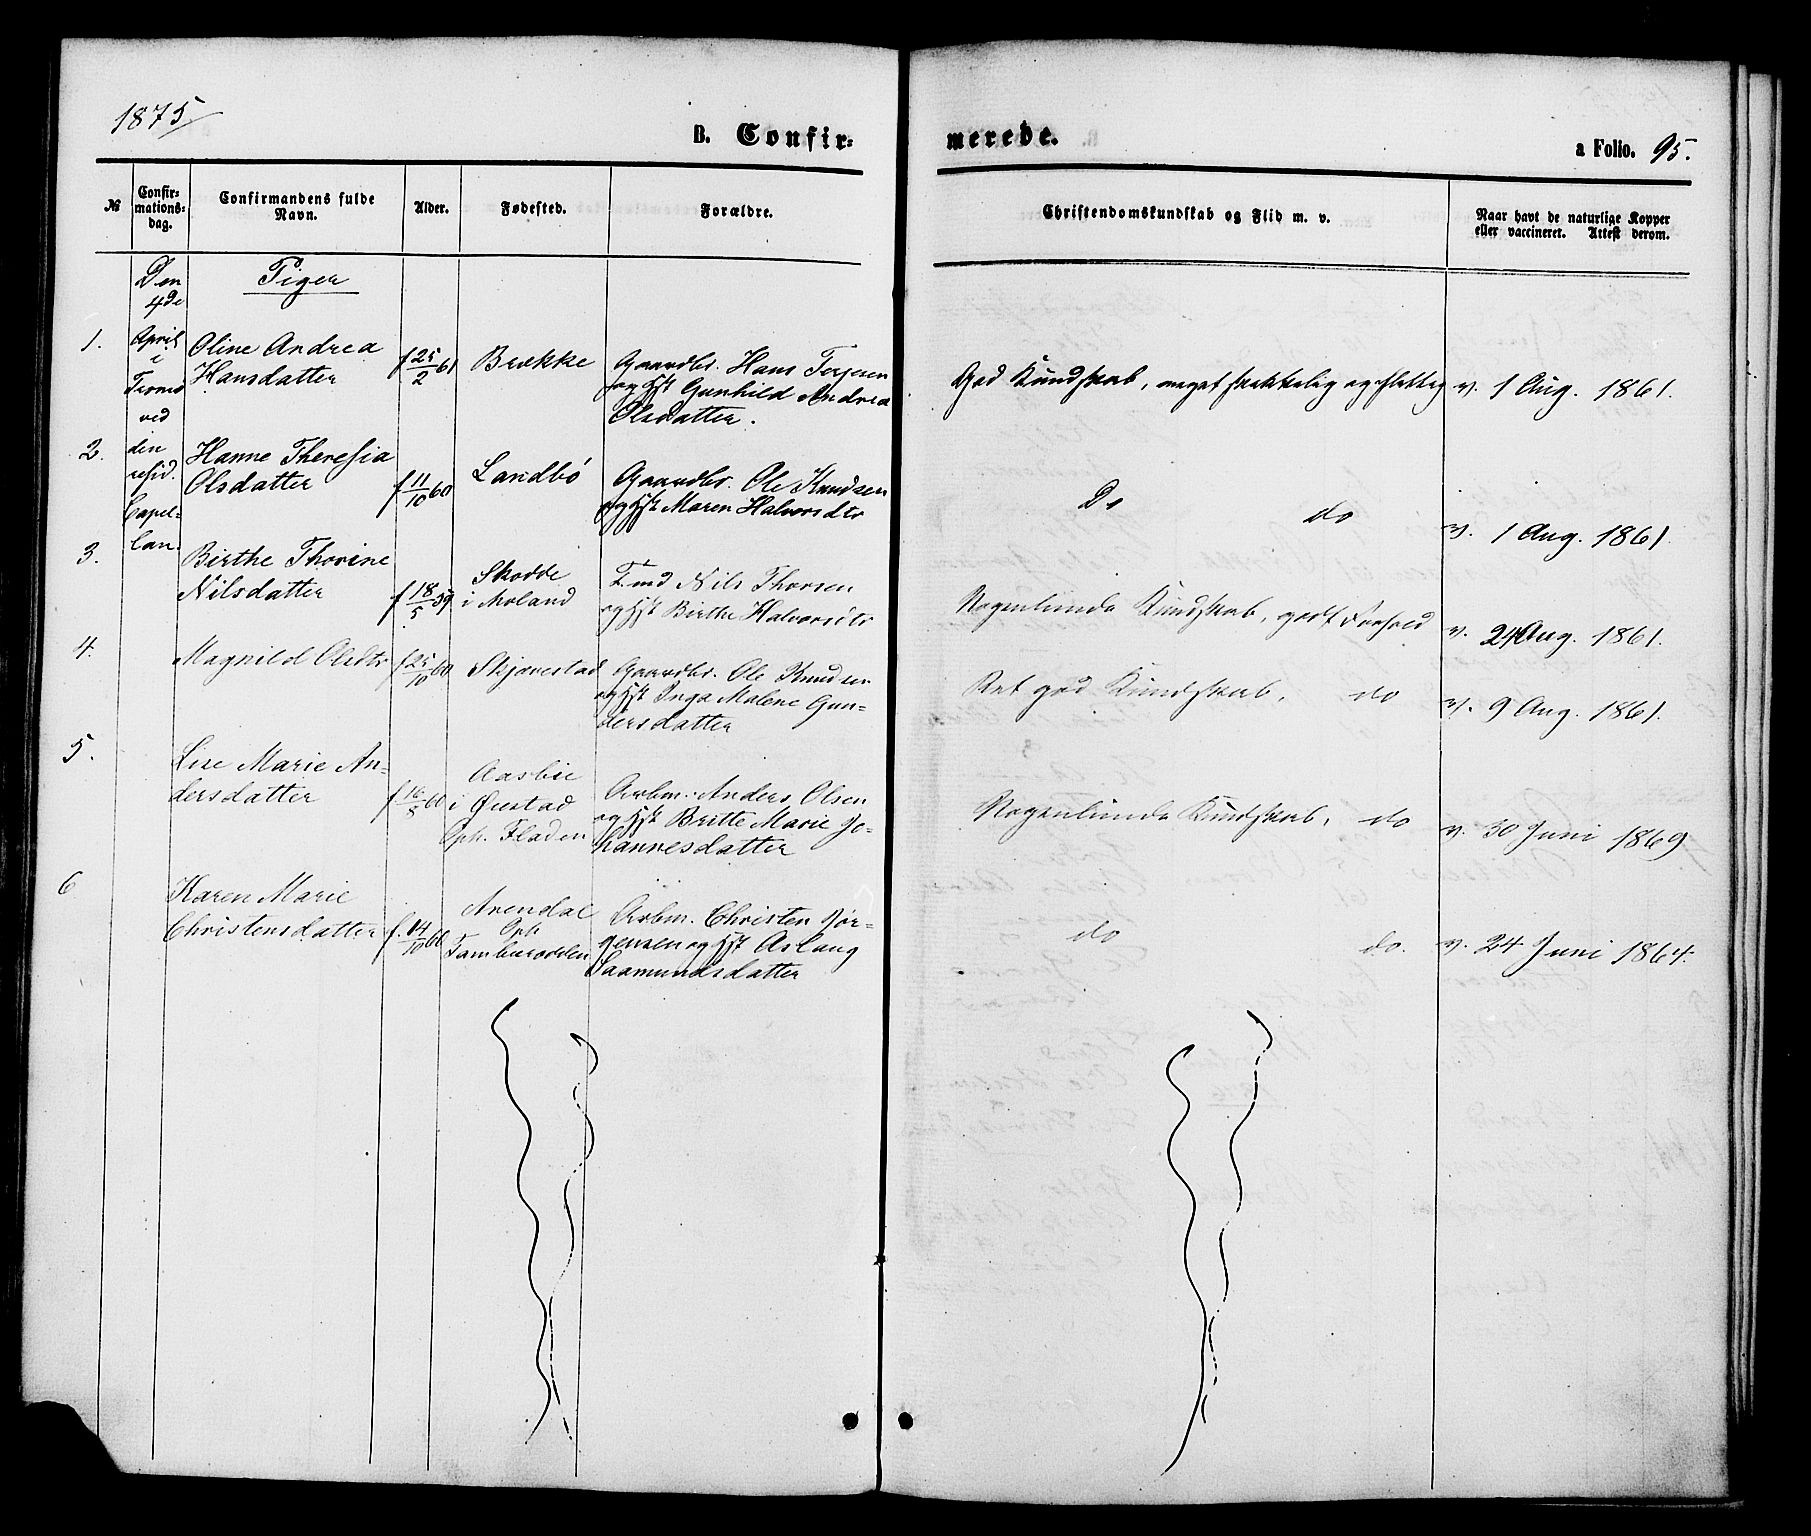 1875
B. Confir-
merede.
a Folio. 95.
№
Confir-
mations-
dag.
Confirmandens fulde
Navn.
Alder.
Fødested.
Forældre.
Christendomskundskab og Flid m. v.
Naar havt de naturlige Kopper
eller vaccineret. Attest derom.
Den
4de
April
i
Tromø
ved
den
resid.
Capel-
lan.
Piger
1.
Oline Andrea
Hansdatter
f 25/2 61
Brække
Gaardbr. Hans Terjesen
og Hst Gunhild Andrea
Olsdatter.
God Kundskab, meget skikkelig og flittig
v. 1 Aug. 1861.
2.
Hanne Theresia
Olsdatter
f 11/10 60
Landbö
Gaardbr. Ole Knudsen
og Hst Maren Halvorsdtr
Do do
v. 1 Aug. 1861.
3.
Birthe Thorine
Nilsdatter
f 18/5 59
Skodde
i Moland
Tmd Nils Thorsen
og Hst Birthe Halvorsdtr
Nogenlunde Kundskab, godt Forhold
v. 24 Aug. 1861.
4.
Magnild Olsdtr
f 25/10 60
Skjævestad
Gaardbr. Ole Knudsen
og Hst Inga Malene Gun-
dersdatter
Ret god Kundskab, do
v. 9 Aug. 1861.
5.
Lise Marie An-
dersdatter
f 16/5 60
Aasbie
i Øiestad
Oph. Fladen
Arbm. Anders Olsen
og Hst Britte Marie Jo-
hannesdatter
Nogenlunde Kundskab, do
v. 30 Juni 1869
6
Karen Marie
Christensdatter
f. 14/10 60
Arendal
Oph
Tamburodden
Arbm. Christen Jör-
gensen og Hst Aslaug
Saamundsdatter
do do.
v. 24 Juni 1864.